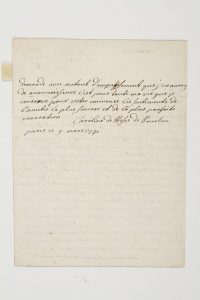 demande avec autant d'empressement que j'en auray
de reconnoissance c'est pour toute ma vie que je
conserve pour votre eminence les sentiments de
l'amitié la plus sincere et de la plus parfaite
veneration
Caroline de Hesse de Bourbon
paris ce 9 mars 1731